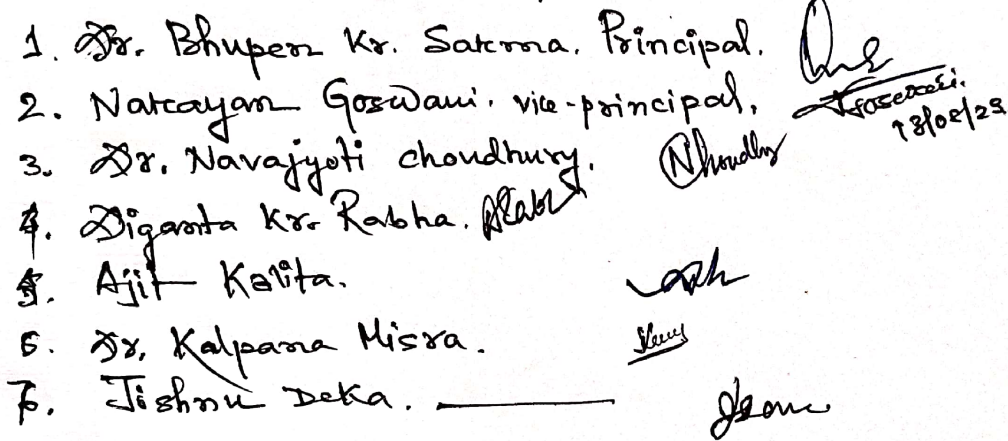 1. Dr. Bhupen Kr. Sarma. Principal.
2. Narayan Goswami. vice-principal. Goswami. 13/02/23
3. Dr. Navajyoti choudhury. NChoudhry
4. Diganta Kr. Rabha. DRabha
5. Ajit Kalita.
6. Dr. Kalpana Misra.
7. Jishnu Deka.